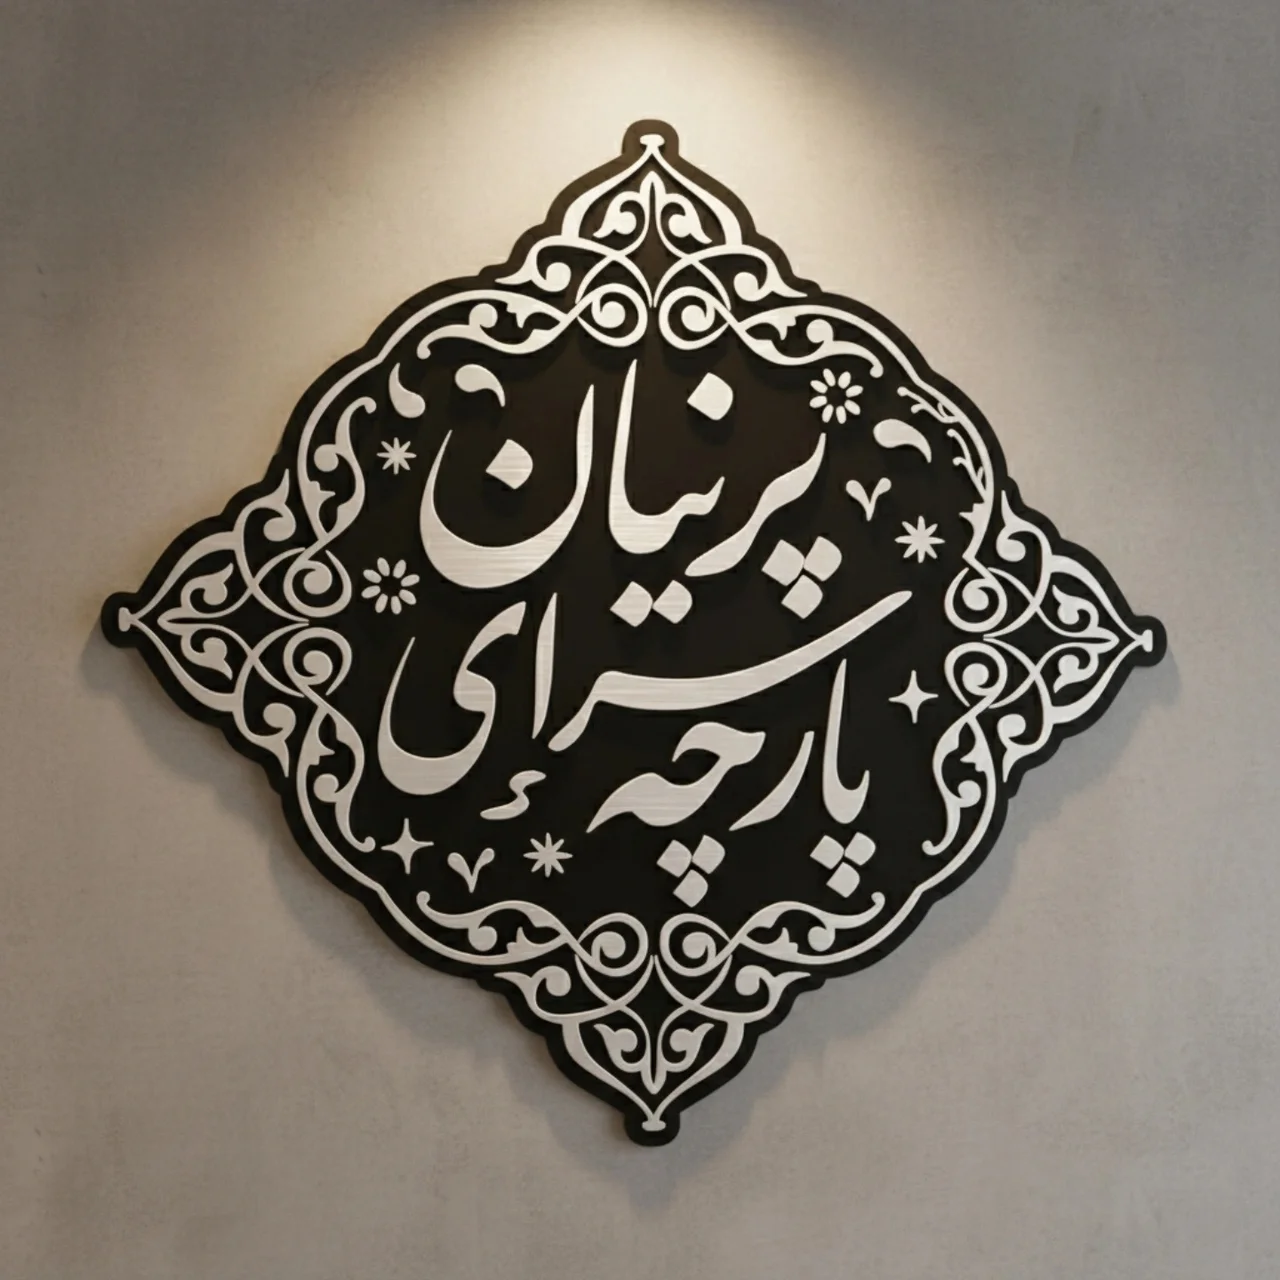 پرنیان
سرای
پارچه